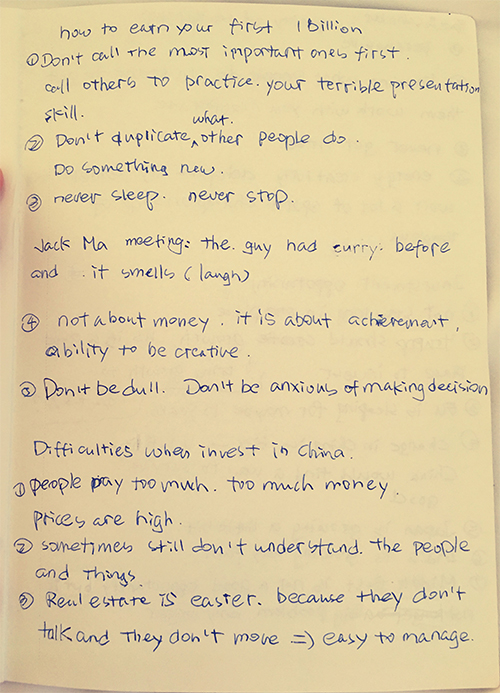 how to earn your first 1 Billion
① Don't call the most important ones first.
call others to practice. your terrible presentation
skill.
what.
② Don't duplicate ^ other people do.
Do something new.
③ never sleep. never stop.
Jack Ma meeting: the. guy had curry. before
and . it smells (laugh)
④ not about money. it is about achievement,
ability to be creative.
⑤ Don't be dull. Don't be anxious of making decision
Difficulties when invest in China.
① people pay too much. too much money.
prices are high.
② sometimes still don't understand. the people
and things.
③ Real estate is easier. because they don't
talk and they don't move => easy to manage.